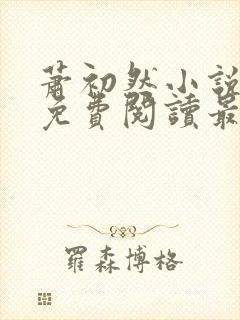 蕭初然小說
免費閱讀最
羅森博格